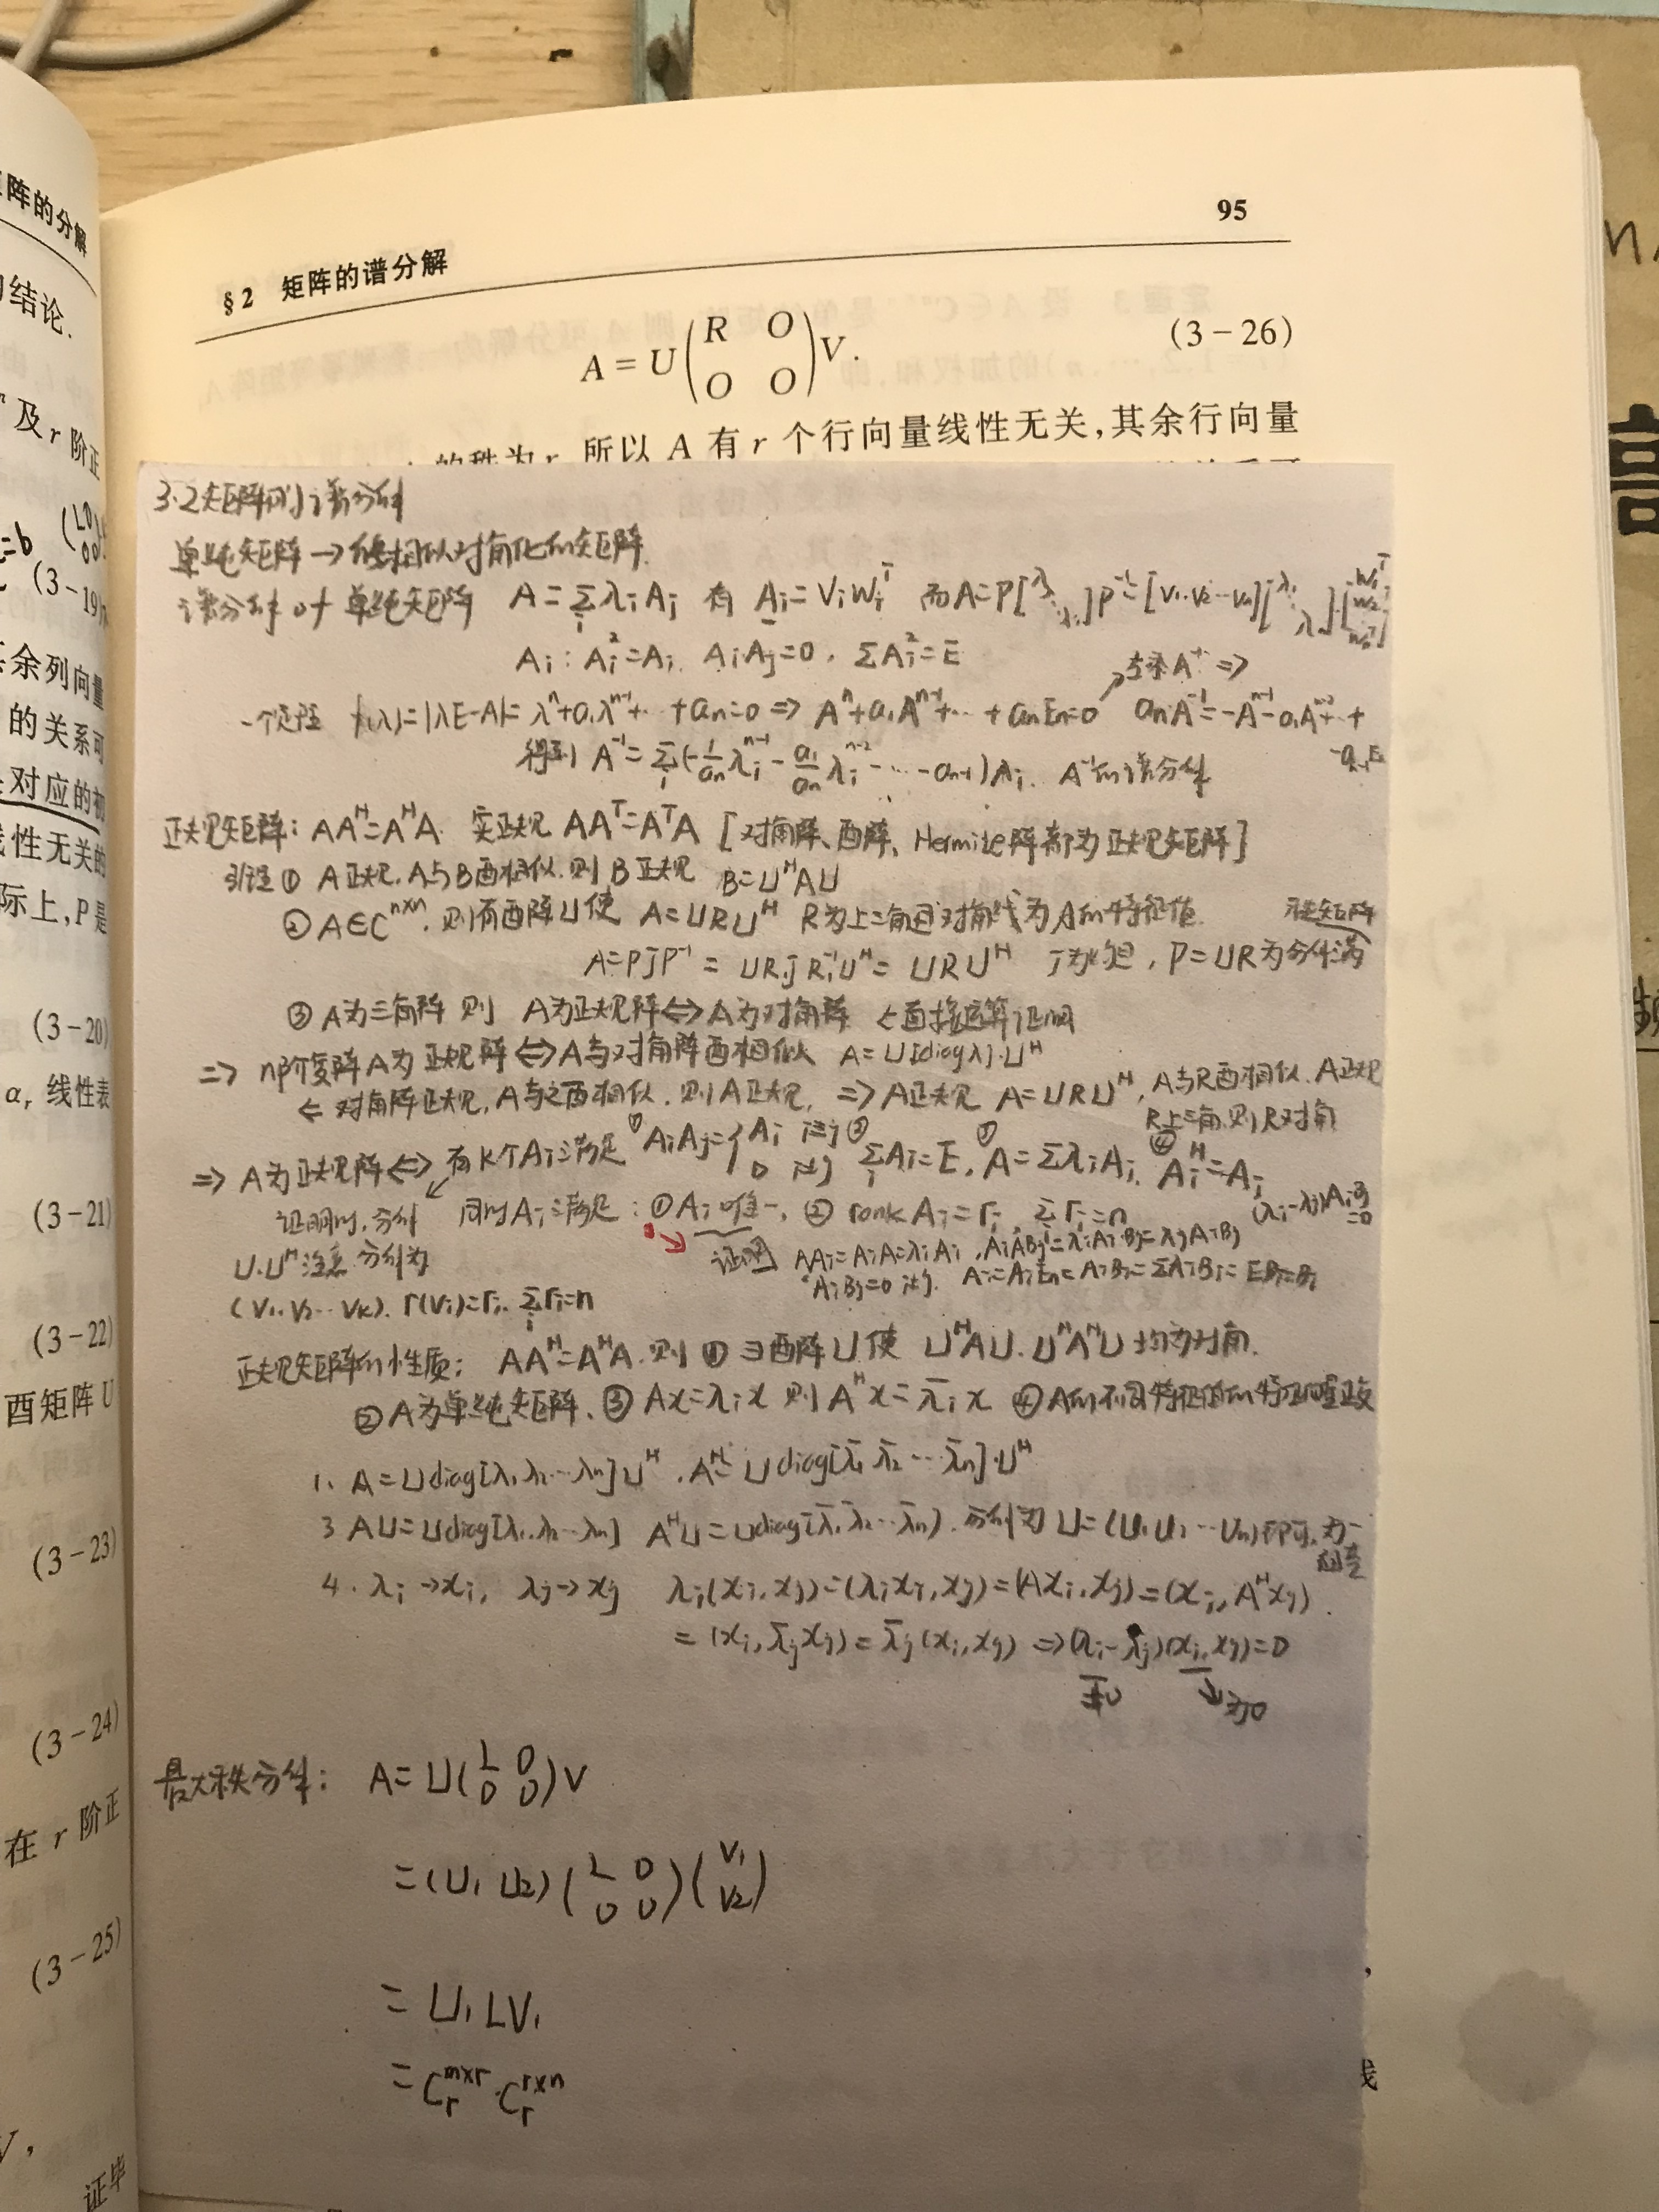 阵的分解
结论.
及 r 阶正
=b
(3-19)
余列向量
的关系可
对应的初
性无关的
际上,P 是
(3-20)
αr 线性表
(3-21)
(3-22)
酉矩阵 U
(3-23)
(3-24)
在 r 阶正
(3-25)
V,
证毕
95
§2 矩阵的谱分解
A = U(R O
O O)V. (3-26)
的秩为 r, 所以 A 有 r 个行向量线性无关,其余行向量
3.2 矩阵的谱分解
单纯矩阵→能相似对角化的矩阵.
谱分解 of 单纯矩阵 A=Σλi Ai 有 Ai=ViWiᵀ 而A=P[λ1 ⋱ λn]P⁻¹=[V1 V2 … Vn][λ1 ⋱ λ][W1ᵀ W2ᵀ WnT]
Ai: Ai²=Ai, AiAj=0, ΣAi²=E
一个定理 f(λ)=|λE-A|=λⁿ+a1λⁿ⁻¹+…+an=0 ⇒ Aⁿ+a1Aⁿ⁻¹+…+anEn=0 anA⁻¹=-Aⁿ⁻¹-a1Aⁿ⁻²+…+
得到 A⁻¹=Σ(-1/an λiⁿ⁻¹ - a1/an λiⁿ⁻² - … - an-1)Ai. A⁻¹的谱分解
正规矩阵: AAᴴ=AᴴA 实正规 AAᵀ=AᵀA [对角阵、酉阵、Hermite阵都为正规矩阵]
引理① A正规.A与B酉相似.则B正规 B=UᴴAU
②A∈Cⁿˣⁿ,则有酉阵U使 A=URUᴴ R为上三角且对角线为A的特征值.
A=PJP⁻¹=UR1JR1⁻¹Uᴴ=URUᴴ P=UR为分解满
③A为三角阵 则 A为正规阵⇔A为对角阵 ←直接运算证明
⇒ n阶复阵A为正规阵⇔A与对角阵酉相似 A=U[diagλ]·Uᴴ
⇐ 对角阵正规,A与之酉相似.则A正规, ⇒A正规 A=URUᴴ,A与R酉相似.A正规
R上三角,则R对角
⇒ A为正规阵⇔有K个Ai满足 ①AiAj={Ai i=j, 0 i≠j ②ΣAi=E, ③A=ΣλiAi ④Aiᴴ=Ai
证明时,分解 同时Ai满足:①Ai唯一, ②rankAi=ri, Σri=n
U.Uᴴ注意分解为 证明 AAi=AiA=λiAi, AiABj=λiAiBj=λjAiBj
AiBj=0 i≠j. Ai=AiEn=AiBi=ΣAiBi=EBi=Bi
(V1.V2…Vk).r(Vi)=ri. Σri=n
正规矩阵的性质: AAᴴ=AᴴA.则①∃酉阵U使 UᴴAU.UᴴAᴴU均为对角.
②A为单纯矩阵、③Ax=λix 则 Aᴴx=λ̄ix ④A的不同特征值的特征向量正交
1. A=Udiag[λ1 λ2…λn]Uᴴ. Aᴴ=Udiag[λ̄1 λ̄2…λ̄n]·Uᴴ
3 AU=Udiag[λ1.λ2…λn] AᴴU=Udiag[λ̄1 λ̄2…λ̄n). 分解为 U=(U1 U2…Un)即可,
4. λi→xi, λj→xj λi(xi,xj)=(λixi,xj)=(Axi,xj)=(xi,Aᴴxj).
=(xi,λ̄jxj)=λ̄j(xi,xj) ⇒(λi-λ̄j)(xi,xj)=0
≠0 为0
最大秩分解: A=U(L 0
0 0)V
=(U1 U2)(L 0
0 0)(V1
V2)
=U1LV1
=Cᵣᵐˣʳ·Cᵣʳˣⁿ